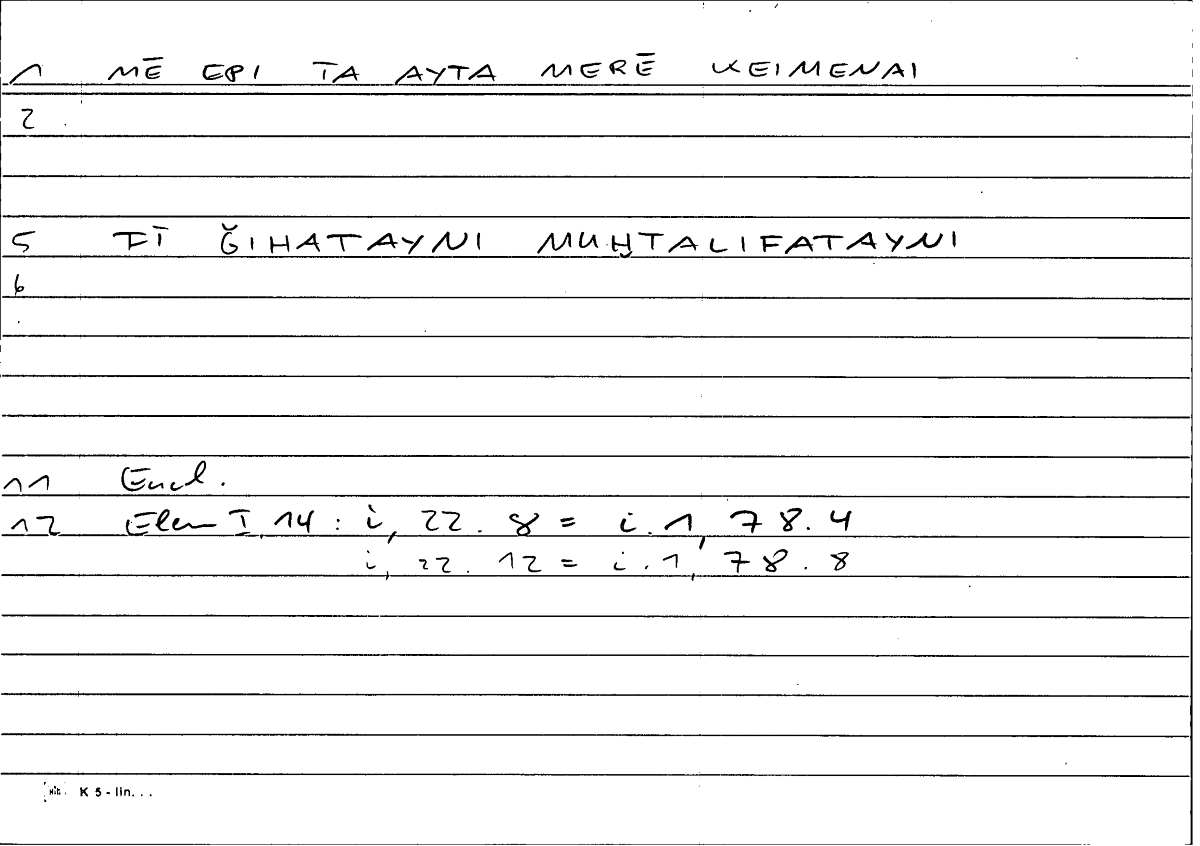 1 MĒ EPI TA AYTA MERĒ KEIMENAI
2
5 FĪ ĞIHATAYNI MUḪTALIFATAYNI
6
11 Eucl.
12 Elem I, 14 : i, 22. 8 = i. 1, 78. 4
i, 22. 12 = i. 1, 78. 8
K 5 - lin. . .